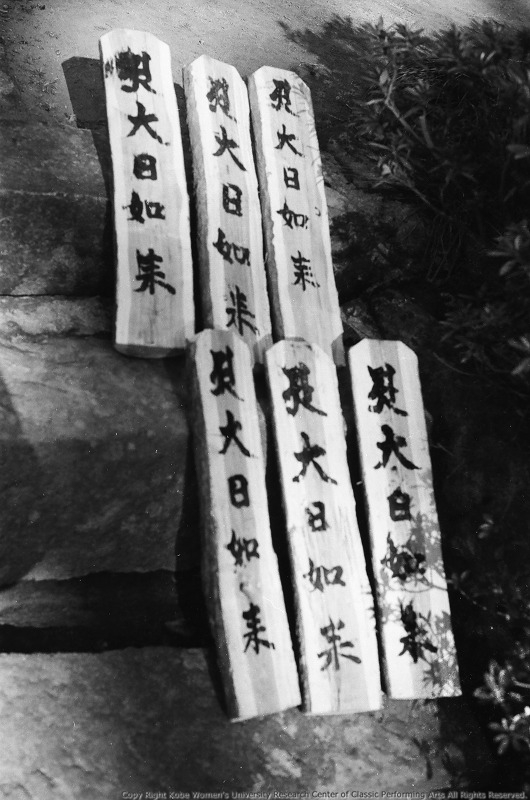 大日如来
大日如来
大日如来
大日如来
大日如来
大日如来
Copy Right Kobe Women's University Research Center of Classic Performing Arts All Rights Reserved.